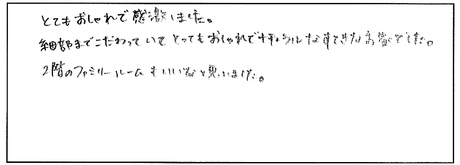 とてもおしゃれで感激しました。
細部までこだわっていてとってもおしゃれでナチュラルなすてきなお家でした。
2階のファミリールームもいいなと思いました。